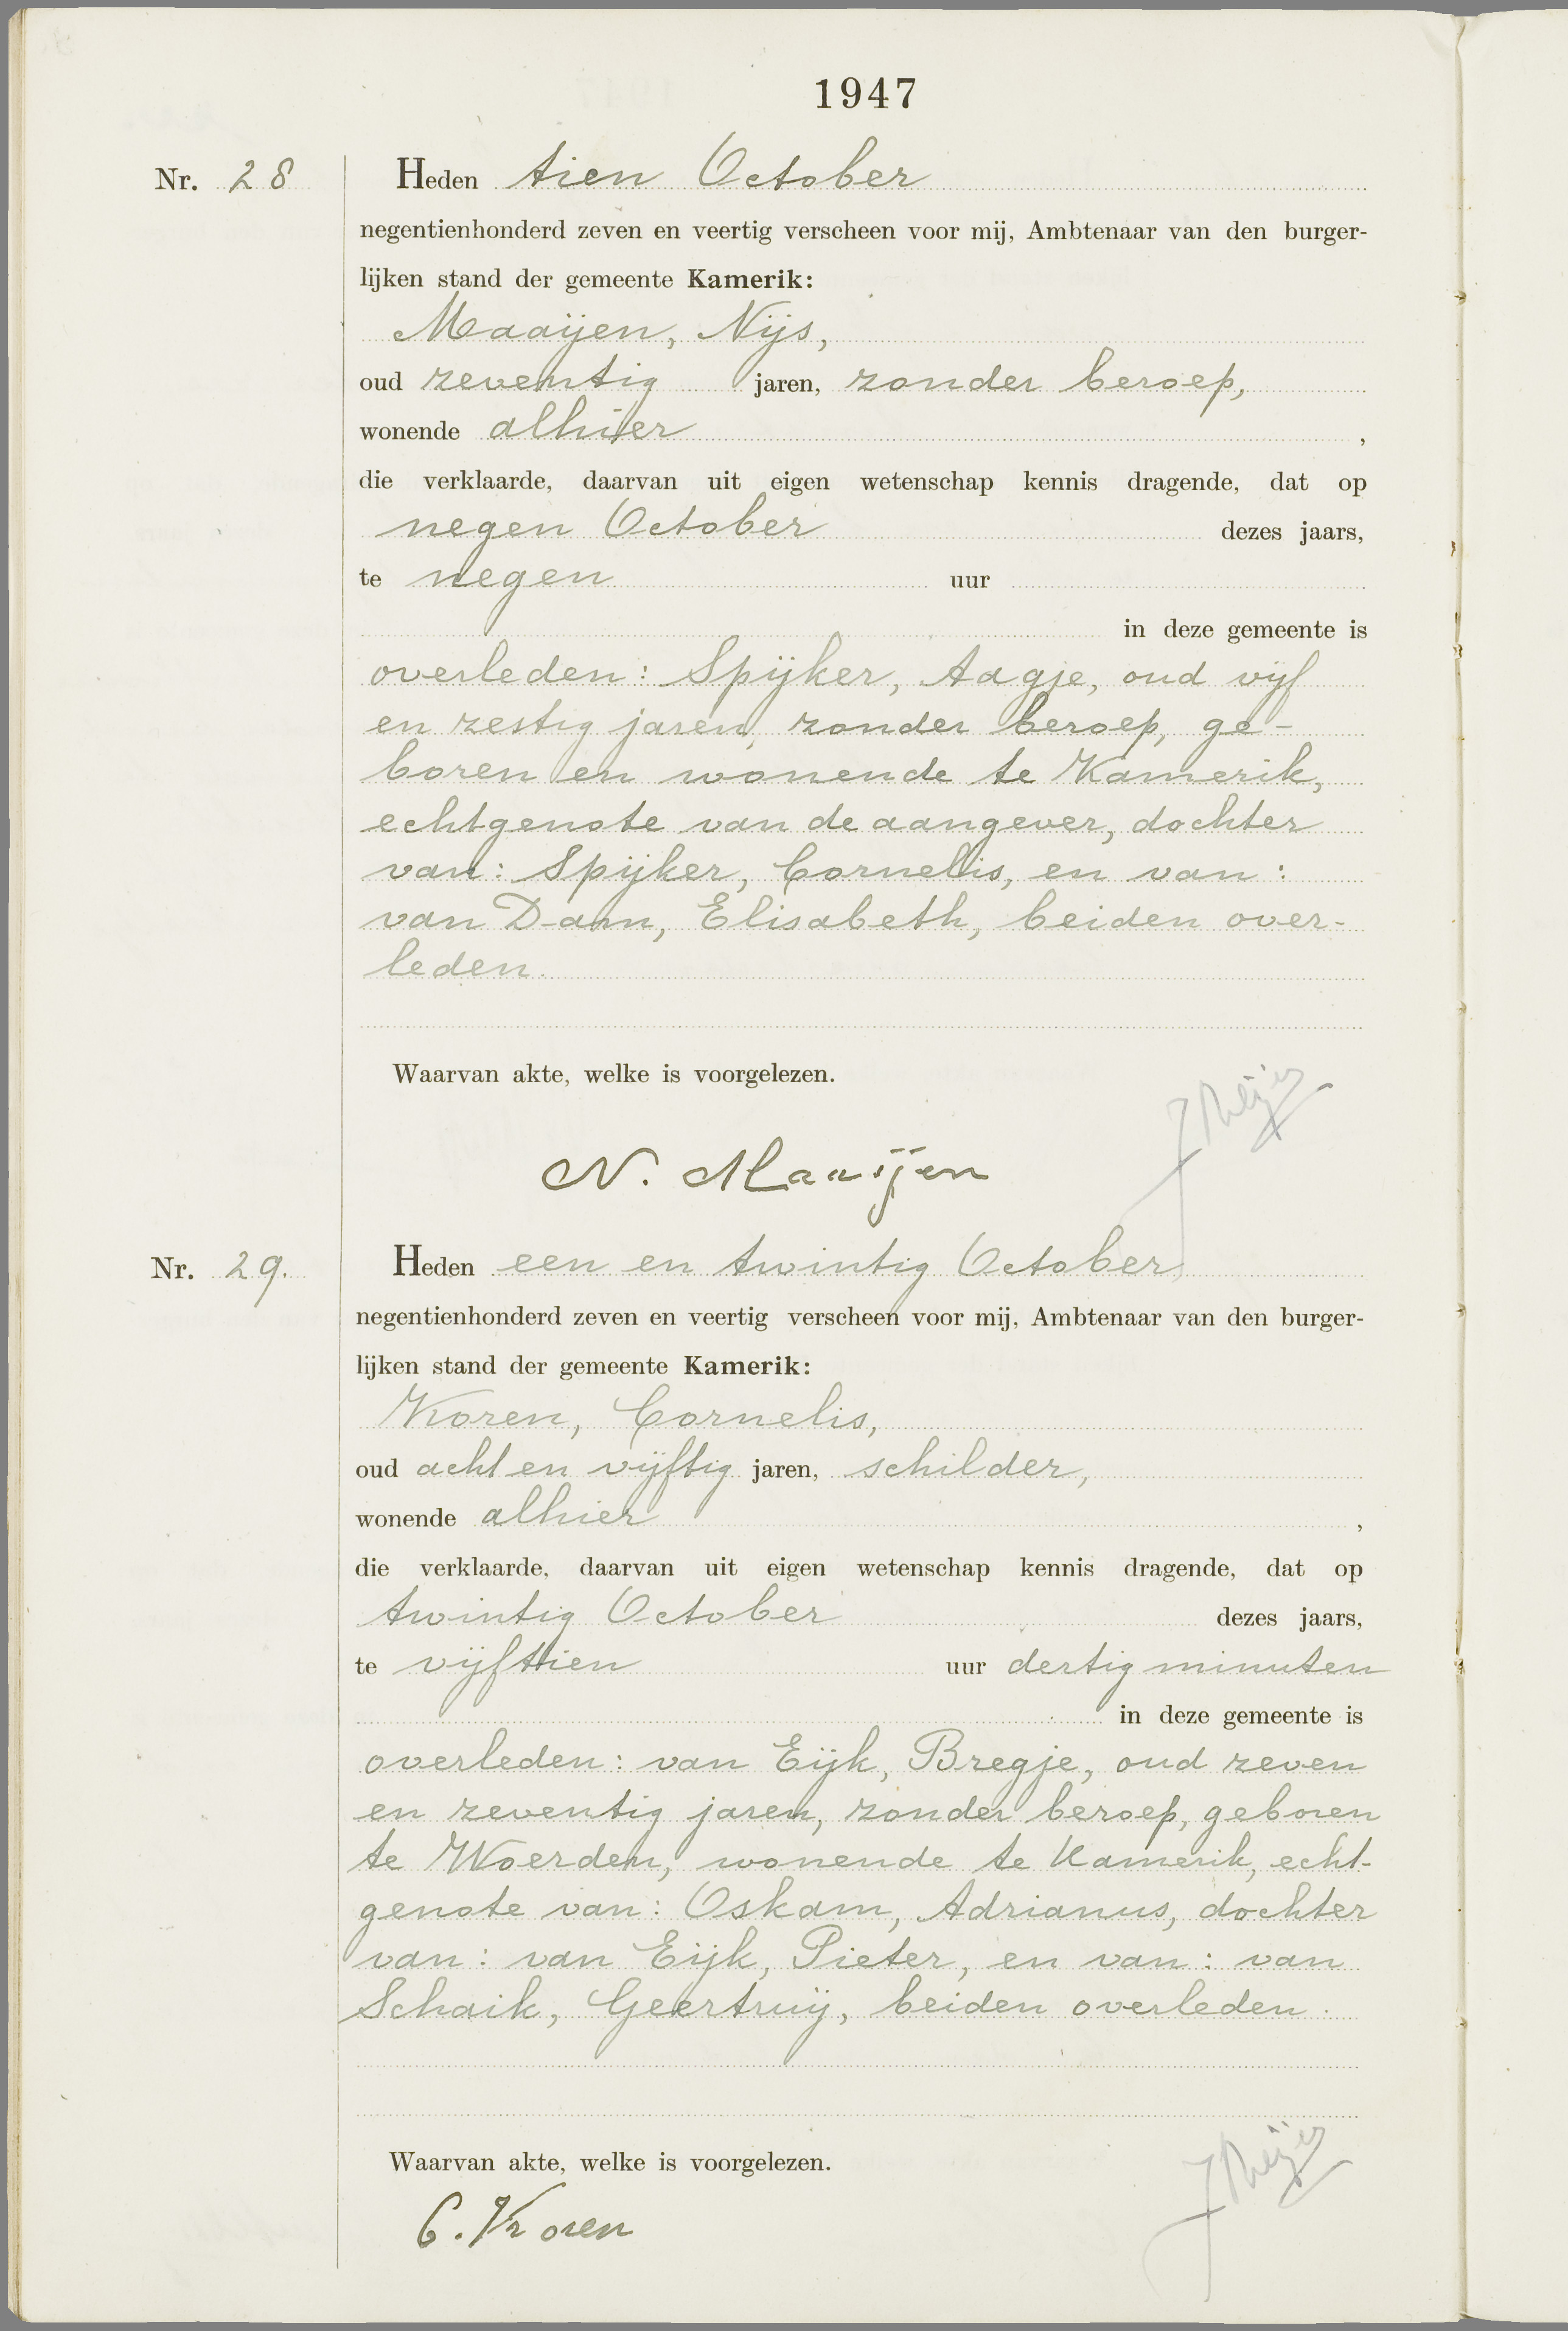 1947
Nr. 28
Heden tien October
negentienhonderd zeven en veertig verscheen voor mij, Ambtenaar van den burger-
lijken stand der gemeente Kamerik:
Maaijen, Nijs,
oud zeventig jaren, zonder beroep,
wonende alhier ,
die verklaarde, daarvan uit eigen wetenschap kennis dragende, dat op
negen October dezes jaars,
te negen uur
in deze gemeente is
overleden: Spijker, Aagje, oud vijf
en zestig jaren, zonder beroep, ge-
boren en wonende te Kamerik,
echtgenote van de aangever, dochter
van: Spijker, Cornelis, en van:
van Dam, Elisabeth, beiden over-
leden.
Waarvan akte, welke is voorgelezen.
N. Maaijen
Nr. 29.
Heden een en twintig October
negentienhonderd zeven en veertig verscheen voor mij, Ambtenaar van den burger-
lijken stand der gemeente Kamerik:
Koren, Cornelis,
oud acht en vijftig jaren, schilder,
wonende alhier ,
die verklaarde, daarvan uit eigen wetenschap kennis dragende, dat op
twintig October dezes jaars,
te vijftien uur dertig minuten
in deze gemeente is
overleden: van Eijk, Bregje, oud zeven
en zeventig jaren, zonder beroep, geboren
te Woerden, wonende te Kamerik, echt-
genote van: Oskam, Adrianus, dochter
van: van Eijk, Pieter, en van: van
Schaik, Geertruij, beiden overleden.
Waarvan akte, welke is voorgelezen.
C. Koren